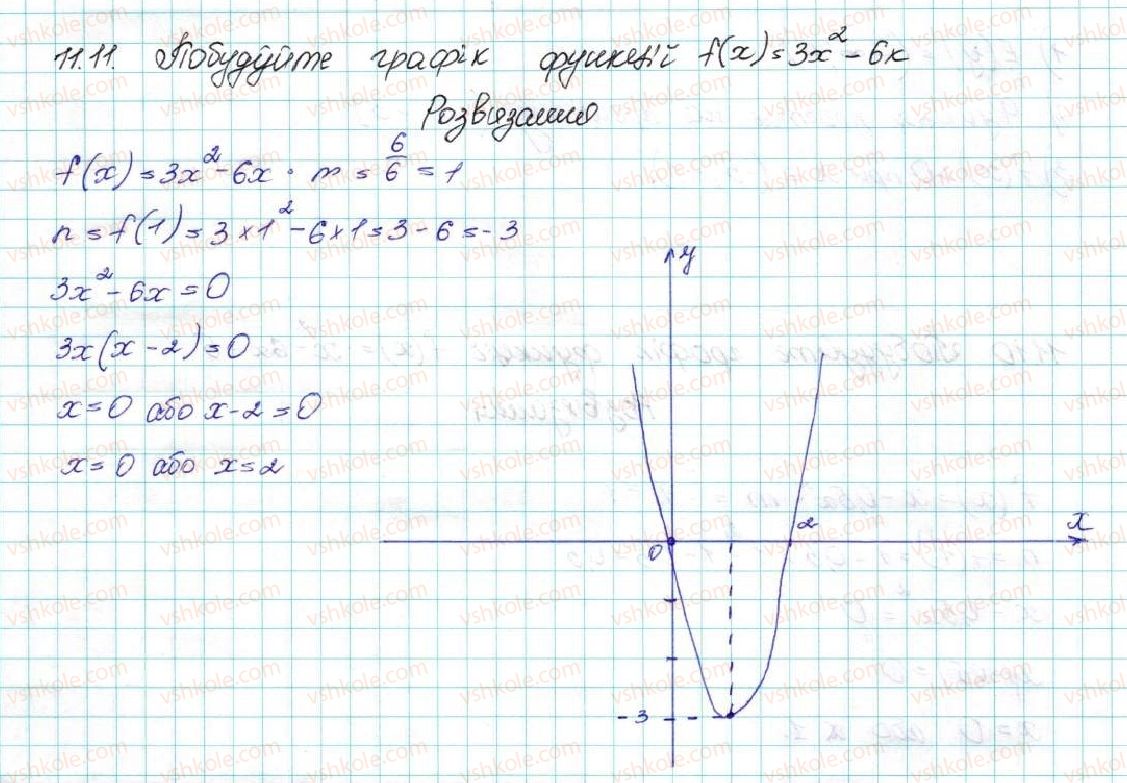 11.11. Побудуйте графік функцій f(x) = 3x² - 6x
Розв'язання
f(x) = 3x² - 6x. m = 6/6 = 1
n = f(1) = 3 × 1² - 6 × 1 = 3 - 6 = -3
3x² - 6x = 0
3x(x - 2) = 0
x = 0 або x - 2 = 0
x = 0 або x = 2
y
2
x
0
-3
vshkole.com